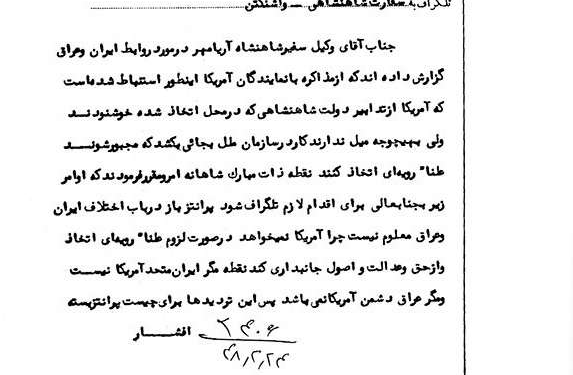 تلگراف به سفارت شاهنشاهی ــ واشنگتن
جناب آقای وکیل سفیر شاهنشاه آریامهر در مورد روابط ایران وعراق
گزارش داده اند که از مذاکره با نمایندگان آمریکا اینطور استنباط شده است
که آمریکا از تدابیر دولت شاهنشاهی که در محل اتخاذ شده خوشنودند
ولی بهیچوجه میل ندارند کار در سازمان ملل بجائی بکشد که مجبور شوند
علنا" رویه ای اتخاذ کنند نقطه ذات مبارك شاهانه امر ومقرر فرمودند که اوامر
زیر بجنابعالی برای اقدام لازم تلگراف شود پرانتز باز در باب اختلاف ایران
وعراق معلوم نیست چرا آمریکا نمیخواهد در صورت لزوم علنا" رویه ای اتخاذ
و از حق وعدالت و اصول جانبداری کند نقطه مگر ایران متحد آمریکا نیست
ومگر عراق دشمن آمریکا نمی باشد پس این تردیدها برای چیست پرانتز بسته
افشار ۲۴۰۶
۴۸٫۲٫۲۴